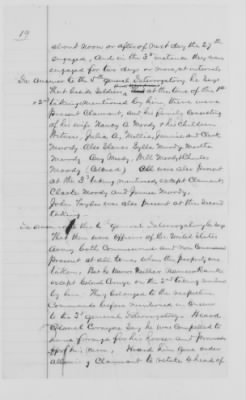 19
about noon or after of next day the 27th
engaged, And in the 3rd instance they were
engaged for two days or more, at intervals
In Answer to the 5th general Interrogatory he says
That beside Soldiers, at the time of the 1st
& 2nd taking mentioned by him, there were
present Claimant, and his family Consisting
of his wife Nancy A. Moody & his Children
Witness, Julia A., Mollie, Jennie and Clark
Moody Also Slaves Zylla Moody, Martha
Moody Amy Moody, Will Moody Charles
Moody (Colored) All were also present
at the 3rd taking mentioned except Claimant,
Clark Moody and Jennie Moody.
John Taylor was also present at the second
taking.
In answer to the 6th general Interrogatory he says
That there were Officers of the United States
Army both Commissioned and Non Commissioned
present at all times when the property was
taken, But he knows neither names or Rank
except Colonel in the 2nd taking
by him They belonged to the respective
Commands before mentioned in Answer
to the 3rd general Interrogatory. Heard
Colonel say he was Compelled to
have forage for his horses and provisions
for his men, Heard him give order
Claimant to state & head of